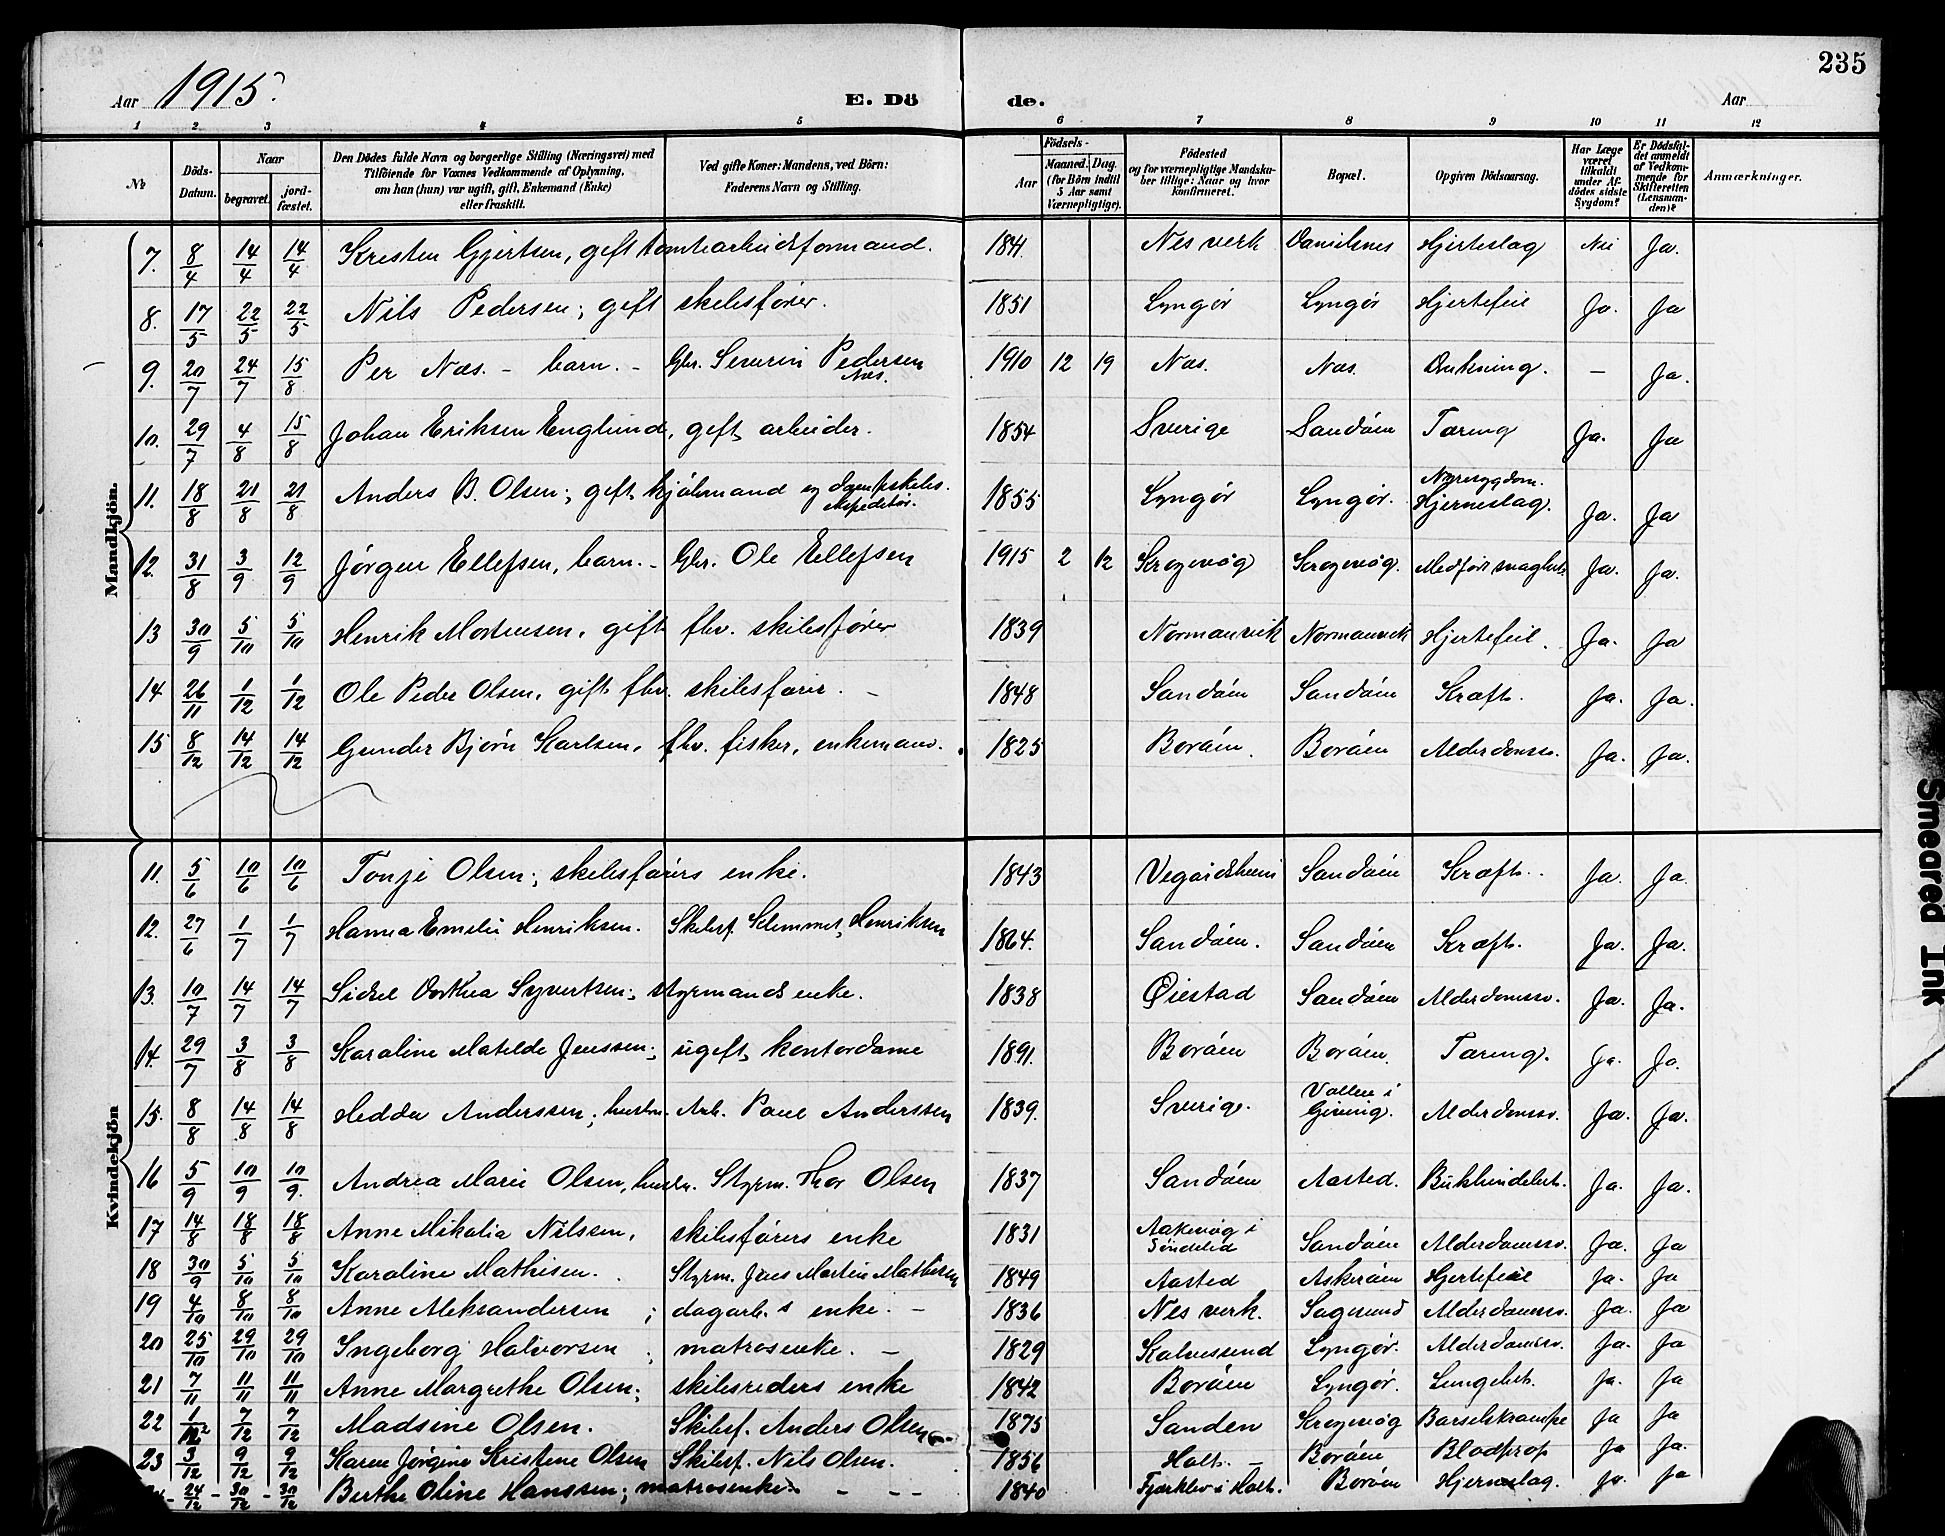 235
Aar 1915. E. Dö de. Aar
1 2 3 4 5 6 7 8 9 10 11 12
№ Döds-Datum. Naar begravet. jordfæstet. Den Dödes fulde Navn og borgerlige Stilling (Næringsvei) med Tilföiende for Voxnes Vedkommende af Oplysning, om han (hun) var ugift, gift, Enkemand (Enke) eller fraskilt. Ved gifte Koner: Mandens, ved Börn: Faderens Navn og Stilling. Födsels- Aar Maaned. Dag. (for Börn indtil 5 Aar samt Værnepligtige). Födested og for værnepligtige Mandskaber tillige: Naar og hvor konfirmeret. Bopæl. Opgiven Dödsaarsag. Har Læge været tilkaldt under Afdödes sidste Sygdom? Er Dödsfaldet anmeldt af Vedkommende for Skifteretten (Lensmanden)? Anmærkninger.
Mandkjön.
7. 8/4 14/4 14/4 Kristen Gjertsen, gift tomtearbeidsformand. 1841 Nes verk Danielsnes Hjerteslag Nei Ja.
8. 17/5 22/5 22/5 Nils Pedersen; gift skibsfører. 1851 Lyngør Lyngør Hjertefeil Ja. Ja
9. 20/7 24/7 15/8 Per Næs. - barn. - Gbr. Severin Pedersen Næs. 1910 12 19 Næs. Næs. Drukning. - Ja.
10. 29/7 4/8 15/8 Johan Eriksen Englund, gift arbeider. 1854 Sverige Sandøen Tæring Ja. Ja
11. 18/8 21/8 21/8 Anders B. Olsen; gift kjøbmand og dampskibsexpeditør. 1855 Lyngør Lyngør. Nyresygdom. Hjerneslag. Ja. Ja
12. 31/8 3/9 12/9 Jørgen Ellefsen, barn. - Gbr. Ole Ellefsen 1915 2 12 Krogevøg Krogevøg. Medfør svaghet Ja. Ja.
13 30/9 5/10 5/10 Henrik Mortensen, gift fhv. skibsfører 1839 Normanvik Normanvik Hjertefeil. Ja. Ja
14 26/11 1/12 1/12 Ole Peder Olsen, gift fhv. skibsfører. - 1848 Sandøen Sandøen Kræft. Ja. Ja.
15 8/12 14/12 14/12 Gunder Bjørn Karlsen, fhv. fisker, enkemand. 1825 Borøen. Borøen Alderdomssv. Ja. Ja.
Kvindekjön
11. 5/6 10/6 10/6 Tonje Olsen; skibsførers enke. 1843 Vegårdsheien Sandøen Kræft. Ja. Ja.
12. 27/6 1/7 1/7 Hanna Emelie Henriksen. Skibsf. Klemmet Henriksen 1864. Sandøen. Sandøen Kræft. Ja. Ja.
13. 10/7 14/7 14/7 Sidsel Dorthea Syvertsen; styrmands enke. 1838 Øiestad Sandøen Alderdomssv. Ja. Ja.
14. 29/7 3/8 3/8 Karoline Matilde Jenssen; ugift kontordame 1891. Borøen Borøen. Tæring. Ja. Ja.
15. 8/8 14/8 14/8 Hedda Anderssen; hustru. Arb. Paul Anderssen 1839. Sverige. Vollen i Gjeving. Alderdomssv. Ja. Ja.
16 5/9 10/9 10/9. Andrea Marie Olsen, hustru. Styrm. Thor Olsen 1837 Sandøen Aasted. Bukhindebet. Ja. Ja.
17 14/8 18/8 18/8 Anne Mikalia Nilssen, skibsførers enke 1831 Aakevåg i Søndeled Sandøen Alderdomssv. Ja. Ja
18 30/9 5/10 5/10 Karoline Mathisen. Styrm. Jens Martin Mathisen 1849 Aasted Askerøen Hjertefeil Ja. Ja
19 4/10 8/10 8/10 Anne Aleksandersen; dagarb.s enke. - 1836 Nes verk. Sagesund Alderdomssv. Ja. Ja
20 25/10 29/10 29/10 Ingeborg Halvorsen; matrosenke. - 1829 Kalvesund Lyngør. Alderdomssv. Ja. Ja
21 7/11 11/11 11/11 Anne Margrethe Olsen; skibsreders enke 1842 Borøen Lyngør. Lungebet. Ja. Ja
22 1/12 7/12 7/12 Madsine Olsen. Skibsf. Anders Olsen 1875 Sanden Krogevøg Barselkrampe Ja Ja
23 3/12 9/12 9/12 Karen Jørgine Kristene Olsen Skibsf. Nils Olsen. 1856 Holt. - Borøen Blodprop Ja Ja.
24/12 - 30/12 - 30/12 Berthe Oline Hanssen; matrosenke - - - 1840 Fjærkleiv i Holt. Borøen Hjerneslag. Ja. Ja
Smeared Ink